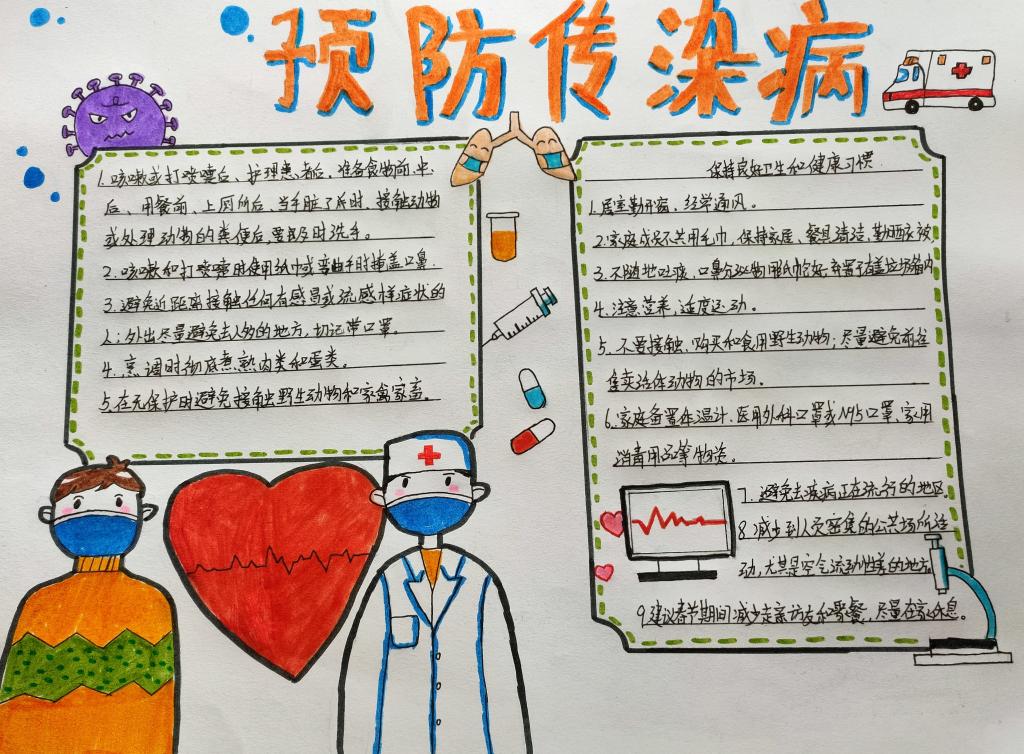 预防传染病
1. 咳嗽或打喷嚏后、护理患者后、准备食物前、中、
后、用餐前、上厕所后、当手脏了后时、接触动物
或处理动物的粪便后,要及时洗手。
2. 咳嗽和打喷嚏时使用纸巾或弯曲手肘掩盖口鼻.
3. 避免近距离接触任何有感冒或流感样症状的
人:外出尽量避免去人多的地方,切记带口罩。
4. 烹调时彻底煮熟肉类和蛋类。
5. 在无保护时避免接触野生动物和家禽家畜。
保持良好卫生和健康习惯.
1. 居室勤开窗,经常通风。
2. 家庭成员不共用毛巾,保持家居、餐具清洁,勤晒衣被
3. 不随地吐痰,口鼻分泌物用纸巾包好,弃置于有盖垃圾箱内
4. 注意营养,适度运动。
5. 不要接触、购买和食用野生动物;尽量避免前往
售卖活体动物的市场。
6. 家庭备置体温计、医用外科口罩或N95口罩、家用
消毒用品等物资。
7. 避免去疾病正在流行的地区.
8. 减少到人员密集的公共场所活
动,尤其是空气流动性差的地方
9. 建议春节期间减少走亲访友和聚餐,尽量在家休息。